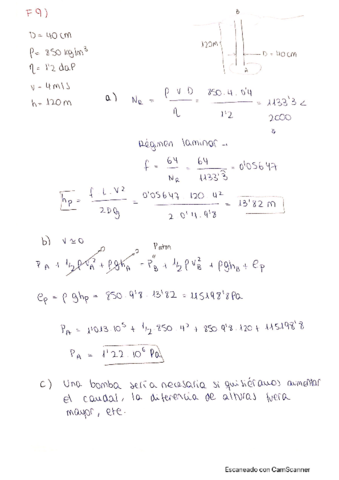 F9)
D = 40 cm
ρ = 850 kg/m³
η = 1'2 daP
v = 4 m/s
h = 120 m
B
120m
D = 40cm
A
a) N_R = ρ v D / η = 850 . 4 . 0'4 / 1'2 = 1133'3 < 2000
Régimen laminar ...
f = 64 / N_R = 64 / 1133'3 = 0'05647
h_p = f L . V² / 2 D g = 0'05647 . 120 . 4² / 2 . 0'4 . 9'8 = 13'82 m
b) v ≈ 0
P_atm
P_A + 1/2 ρ v_A² + ρ g h_A = P_B + 1/2 ρ v_B² + ρ g h_B + e_p
e_p = ρ g h_p = 850 . 9'8 . 13'82 = 115198'8 Pa
P_A = 1'013 . 10⁵ + 1/2 850 . 4² + 850 . 9'8 . 120 + 115198'8
P_A = 1'22 . 10⁶ Pa
c) Una bomba sería necesaria si quisiéramos aumentar
el caudal, la diferencia de alturas fuera
mayor, etc.
Escaneado con CamScanner